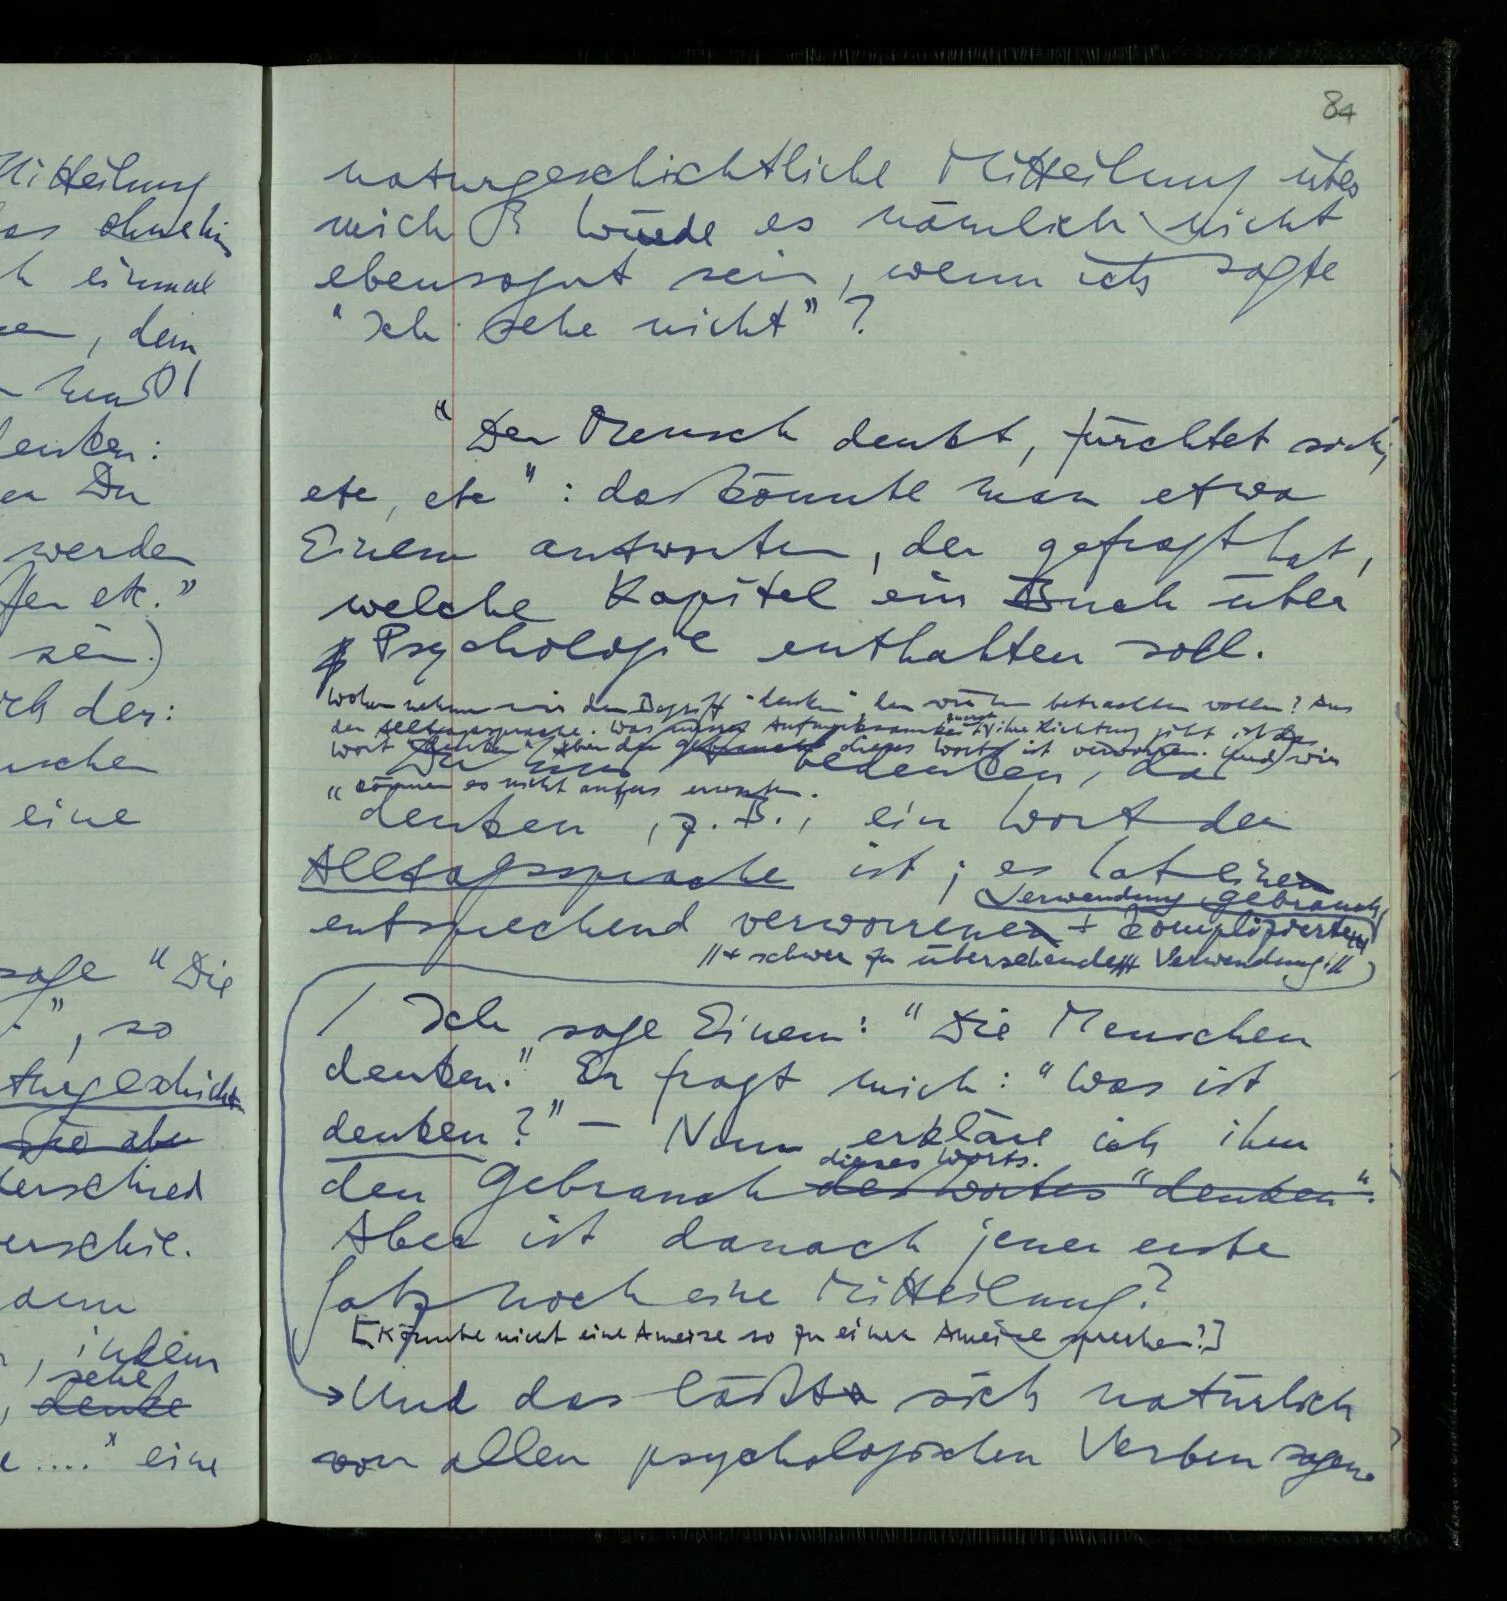 Mitteilung
das ohnehin
h einmal
en, dem
denken:
er Du
werden
fen etc."
sein.)
ich der:
nschen
eine
sage "Die
.", so
turgeschicht
Die aber
terschied
verschie-
dem
, indem
sehe
, denke
e ...." eine
84
naturgeschichtliche Mitteilung über
mich? Würde es nämlich nicht
ebensogut sein, wenn ich sagte
"Ich sehe nicht"?
"Der Mensch denkt, fürchtet sich,
etc, etc": das könnte man etwa
Einem antworten, der gefragt hat,
welche Kapitel ein Buch über
Psychologie enthalten soll.
Woher nehmen wir den Begriff 'denken' den wir hier betrachten wollen? Aus
der Alltagssprache. Was unsrer Aufmerksamkeit zuerst ihre Richtung gibt, ist das
Wort "denken". Aber der Gebrauch dieses Worts ist verworren. Und wir
können es nicht anders erwarten.
Du mußt bedenken, daß
"denken", z.B., ein Wort der
Alltagssprache ist; es hat einen
Verwendung Gebrauch
entsprechend verworrenen + komplizierten
"+ schwer zu übersehenden Verwendung."
/ Ich sage Einem: "Die Menschen
denken." Er fragt mich: "Was ist
denken?" — Nun erkläre ich ihm
dieses Worts.
den Gebrauch des Wortes "denken".
Aber ist danach jener erste
Satz noch eine Mitteilung?
[Könnte nicht eine Ameise so zu einer Ameise sprechen?]
Und das läßt sich natürlich
von allen psychologischen Verben sagen.